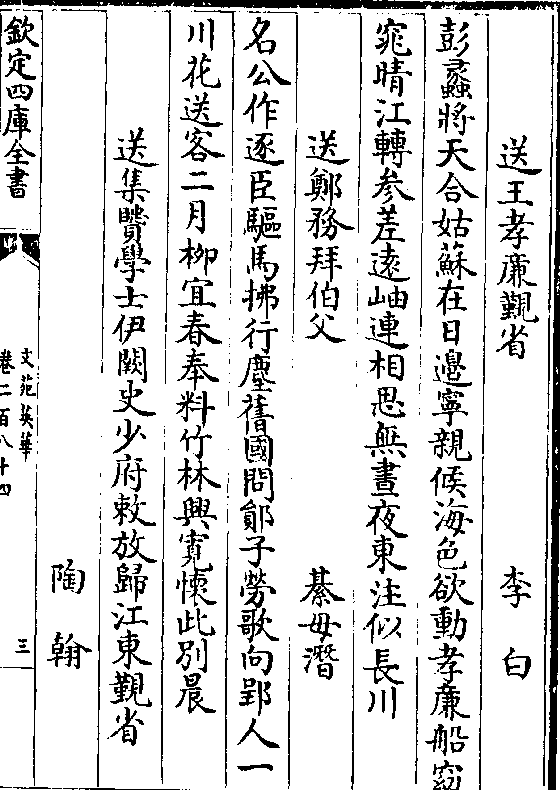 送王孝廉覲省 李白
彭蠡將天合姑蘇在日邊寧親候海色欲動孝廉船窈
窕晴江轉參差逺岫連相思無晝夜東注似長川
送鄭務拜伯父 綦毋潛
名公作逐臣驅馬拂行塵舊國問鄖子勞歌向郢人一
川花送客二月柳宜春奉料竹林興寛懷此別晨
送集賢學士伊闕史少府敕放歸江東覲省
陶翰
欽定四庫全書
文苑英華
卷二百八十四
三